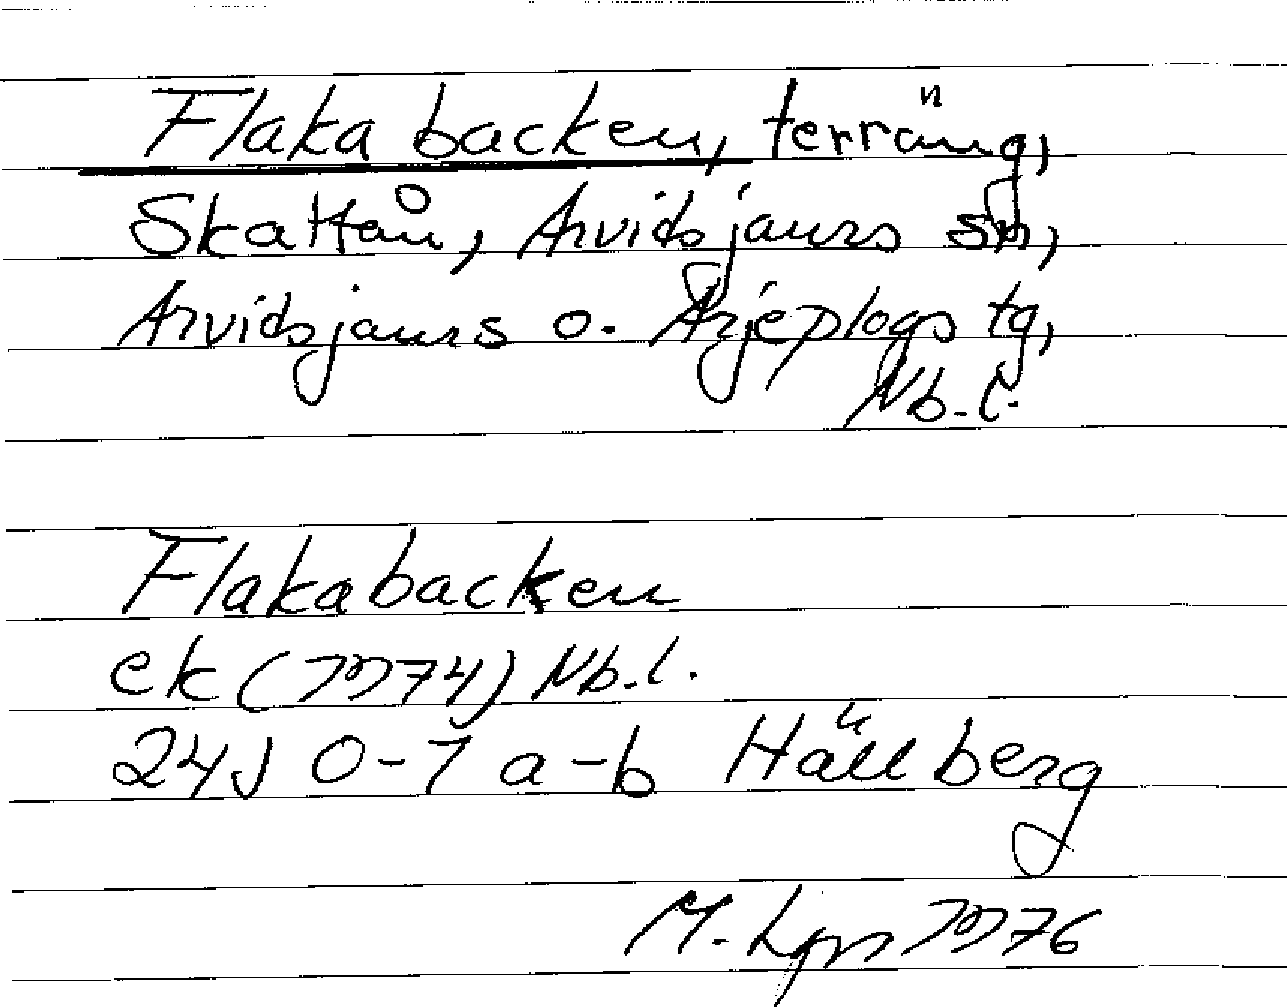 Flakabacken, terräng,
Skattån, Arvidsjaurs sn,
Arvidsjaurs o. Arjeplogs tg,
Nb. l.
Flakabacken
ek (1974) Nb. l.
24J 0-1 a-b Hällberg
M. 1976